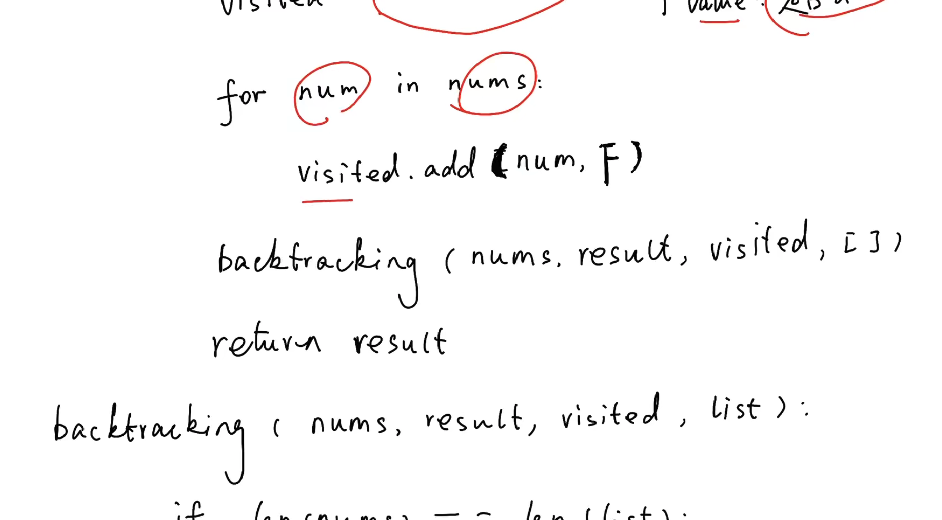 visited } value :
for num in nums:
visited. add (num, F)
backtracking ( nums, result, visited, [ ] )
return result
backtracking ( nums, result, visited, list ) :
if len(nums) == len(list):